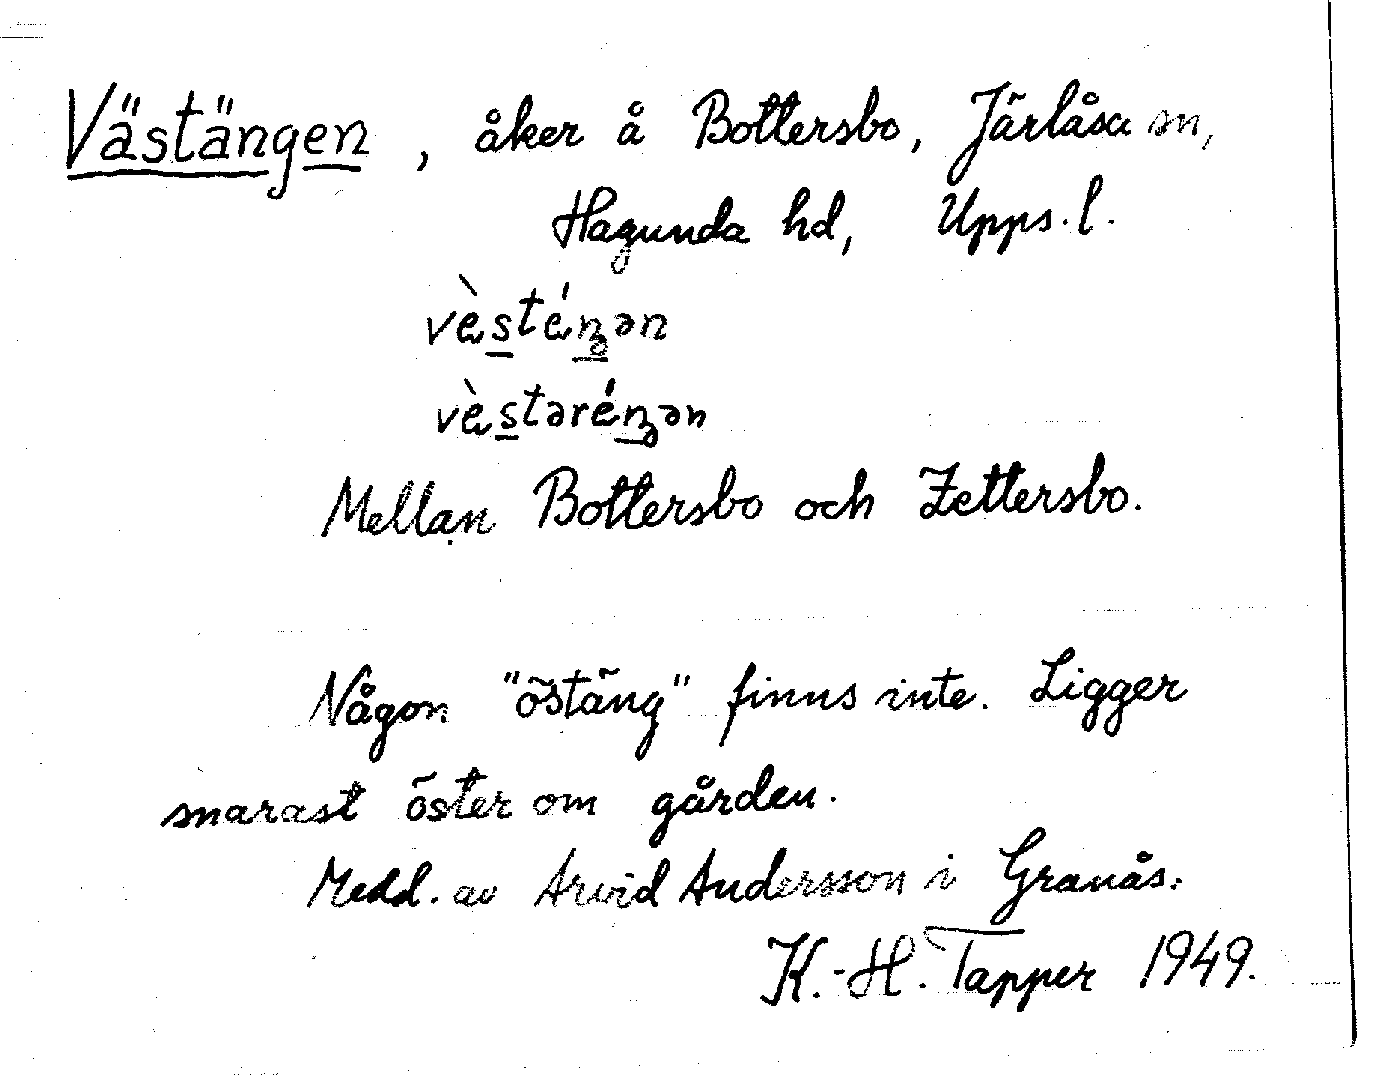 Västängen, åker å Bottersbo, Järlåsa sn,
Hagunda hd, Upps. l.
vè̀sténən
vè̀stərénən
Mellan Bottersbo och Zettersbo.
Någon "östäng" finns inte. Ligger
snarast öster om gården.
Medd. av Arvid Andersson i Granås.
K.-H. Tapper 1949.